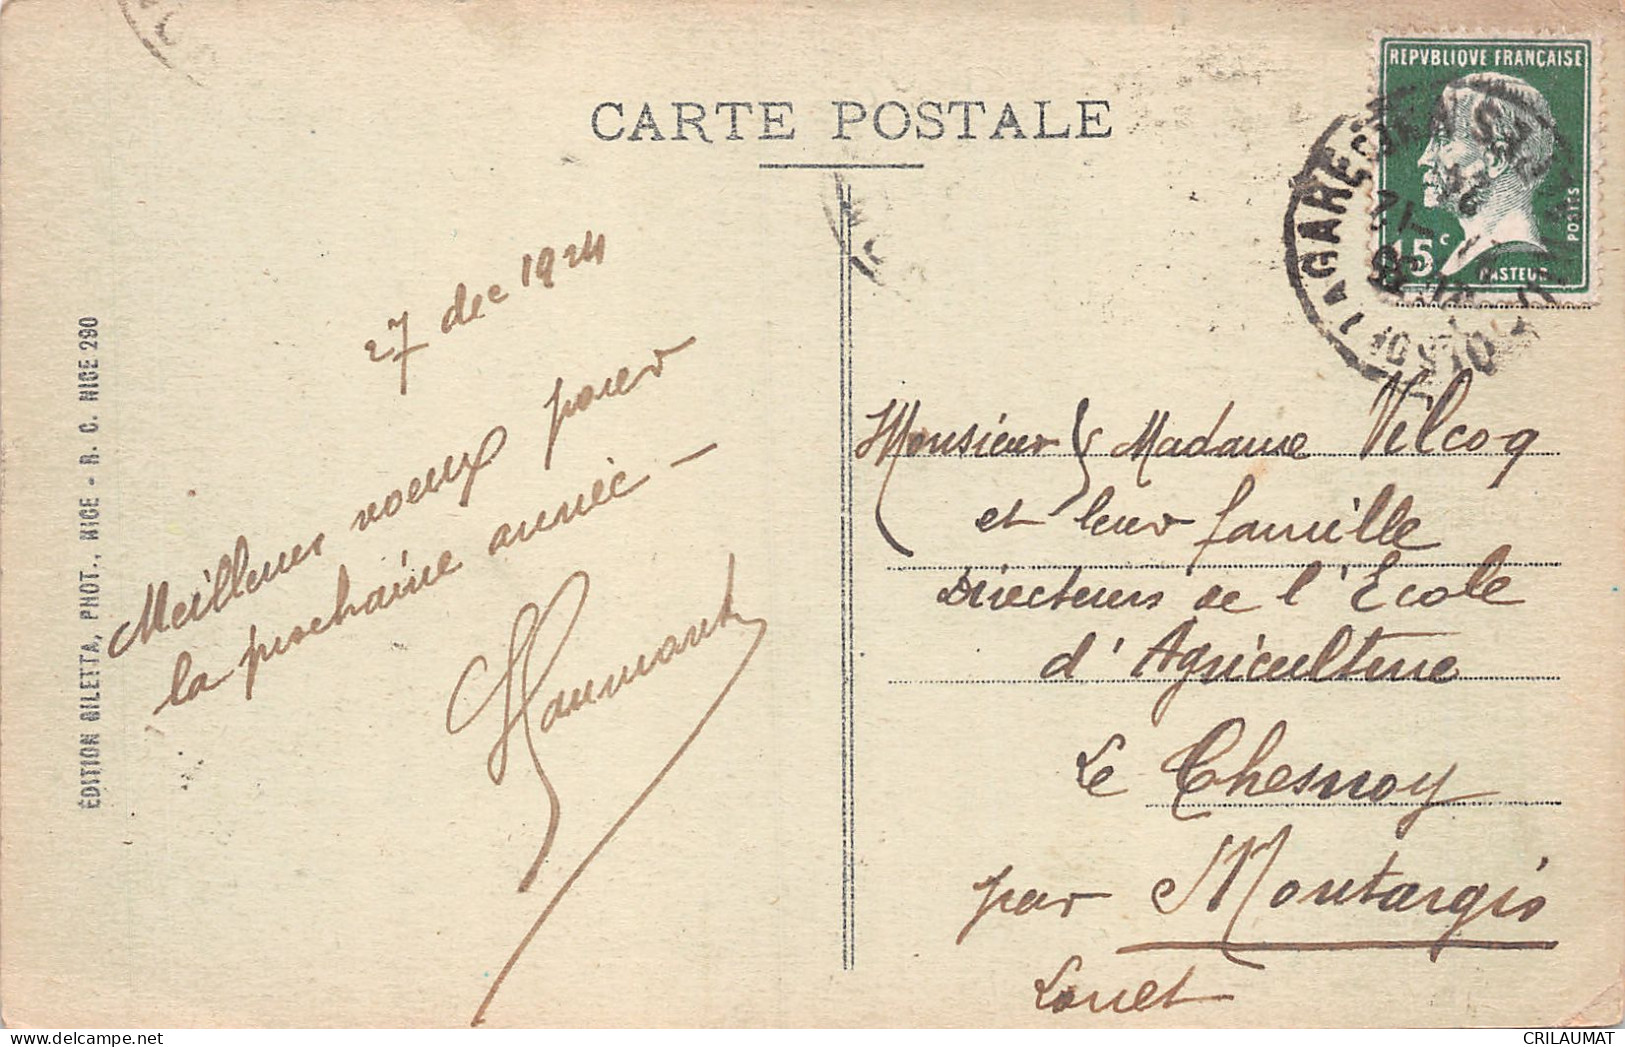 CARTE POSTALE
REPVBLIQVE FRANÇAISE
15c
POSTES
PASTEUR
LA GARE
27 dec 1924
Meilleurs voeux pour
la prochaine année –
Haumont
Monsieur & Madame Vilcoq
et leur famille
Directeurs de l'Ecole
d'Agriculture
Le Chesnoy
par Montargis
Loiret
ÉDITION GILETTA, PHOT., NICE - R. C. NICE 290
CRILAUMAT